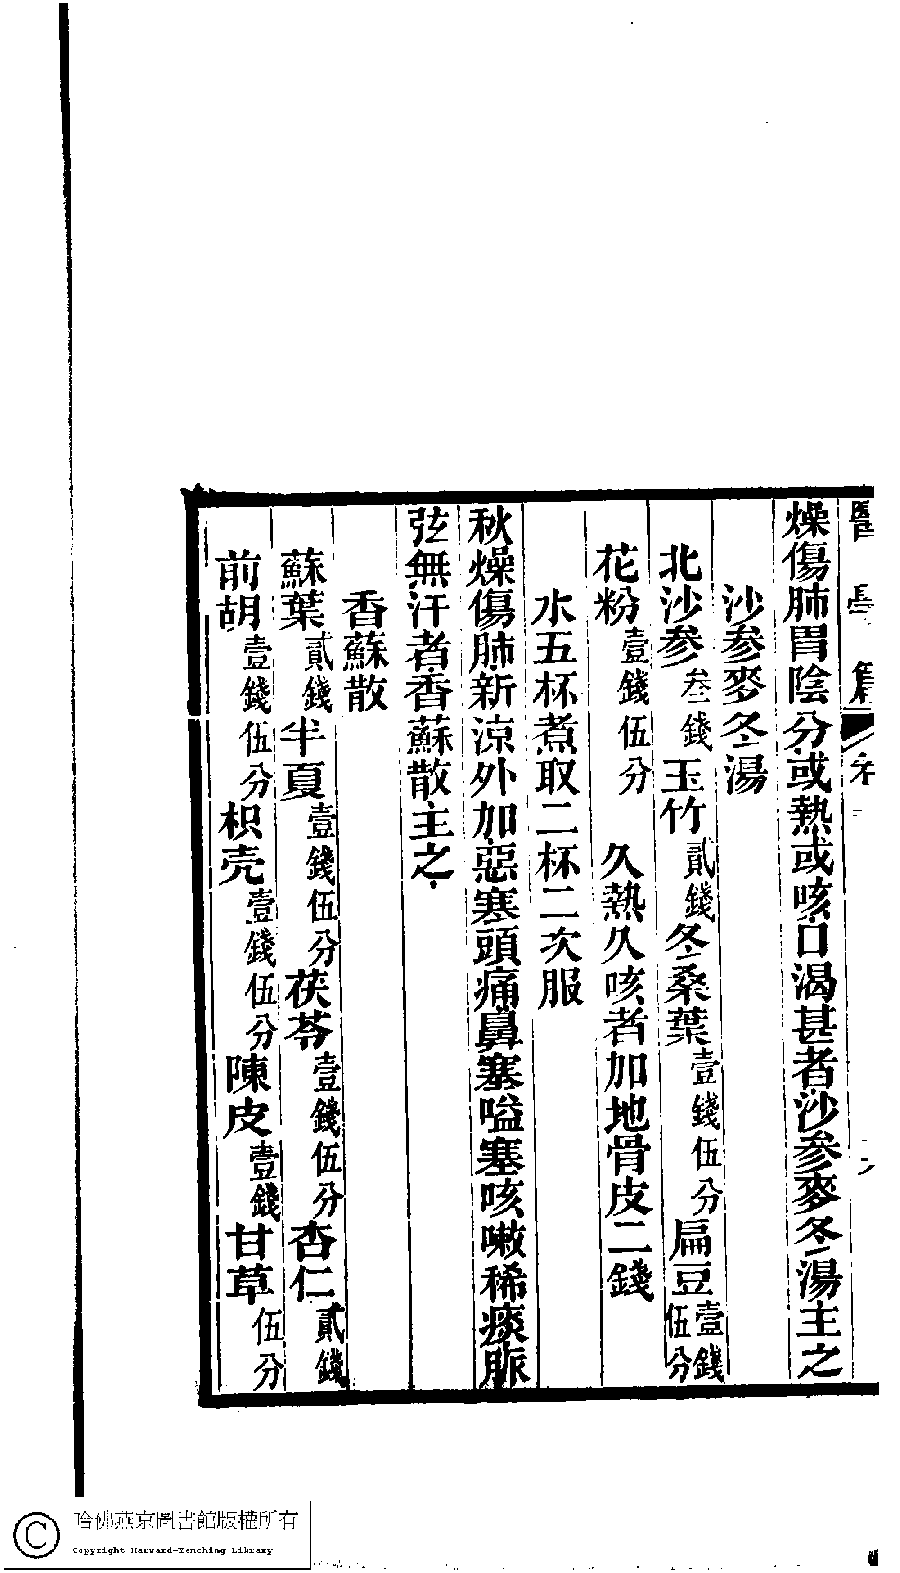 醫學集
燥傷肺胃陰分或熱或咳口渴甚者沙參麥冬湯主之
沙参麥冬湯
北沙参叁錢玉竹貳錢冬桑葉壹錢伍分扁豆壹錢伍分
花粉壹錢伍分 久熱久咳者加地骨皮二錢
水五杯煮取二杯二次服
秋燥傷肺新涼外加惡寒頭痛鼻塞嗌塞咳嗽稀痰脈
弦無汗者香蘇散主之
香蘇散
蘇葉貳錢半夏壹錢伍分茯苓壹錢伍分杏仁貳錢
前胡壹錢伍分枳壳壹錢伍分陳皮壹錢甘草伍分
哈佛燕京圖書館版權所有
Copyright Harvard-Yenching Library